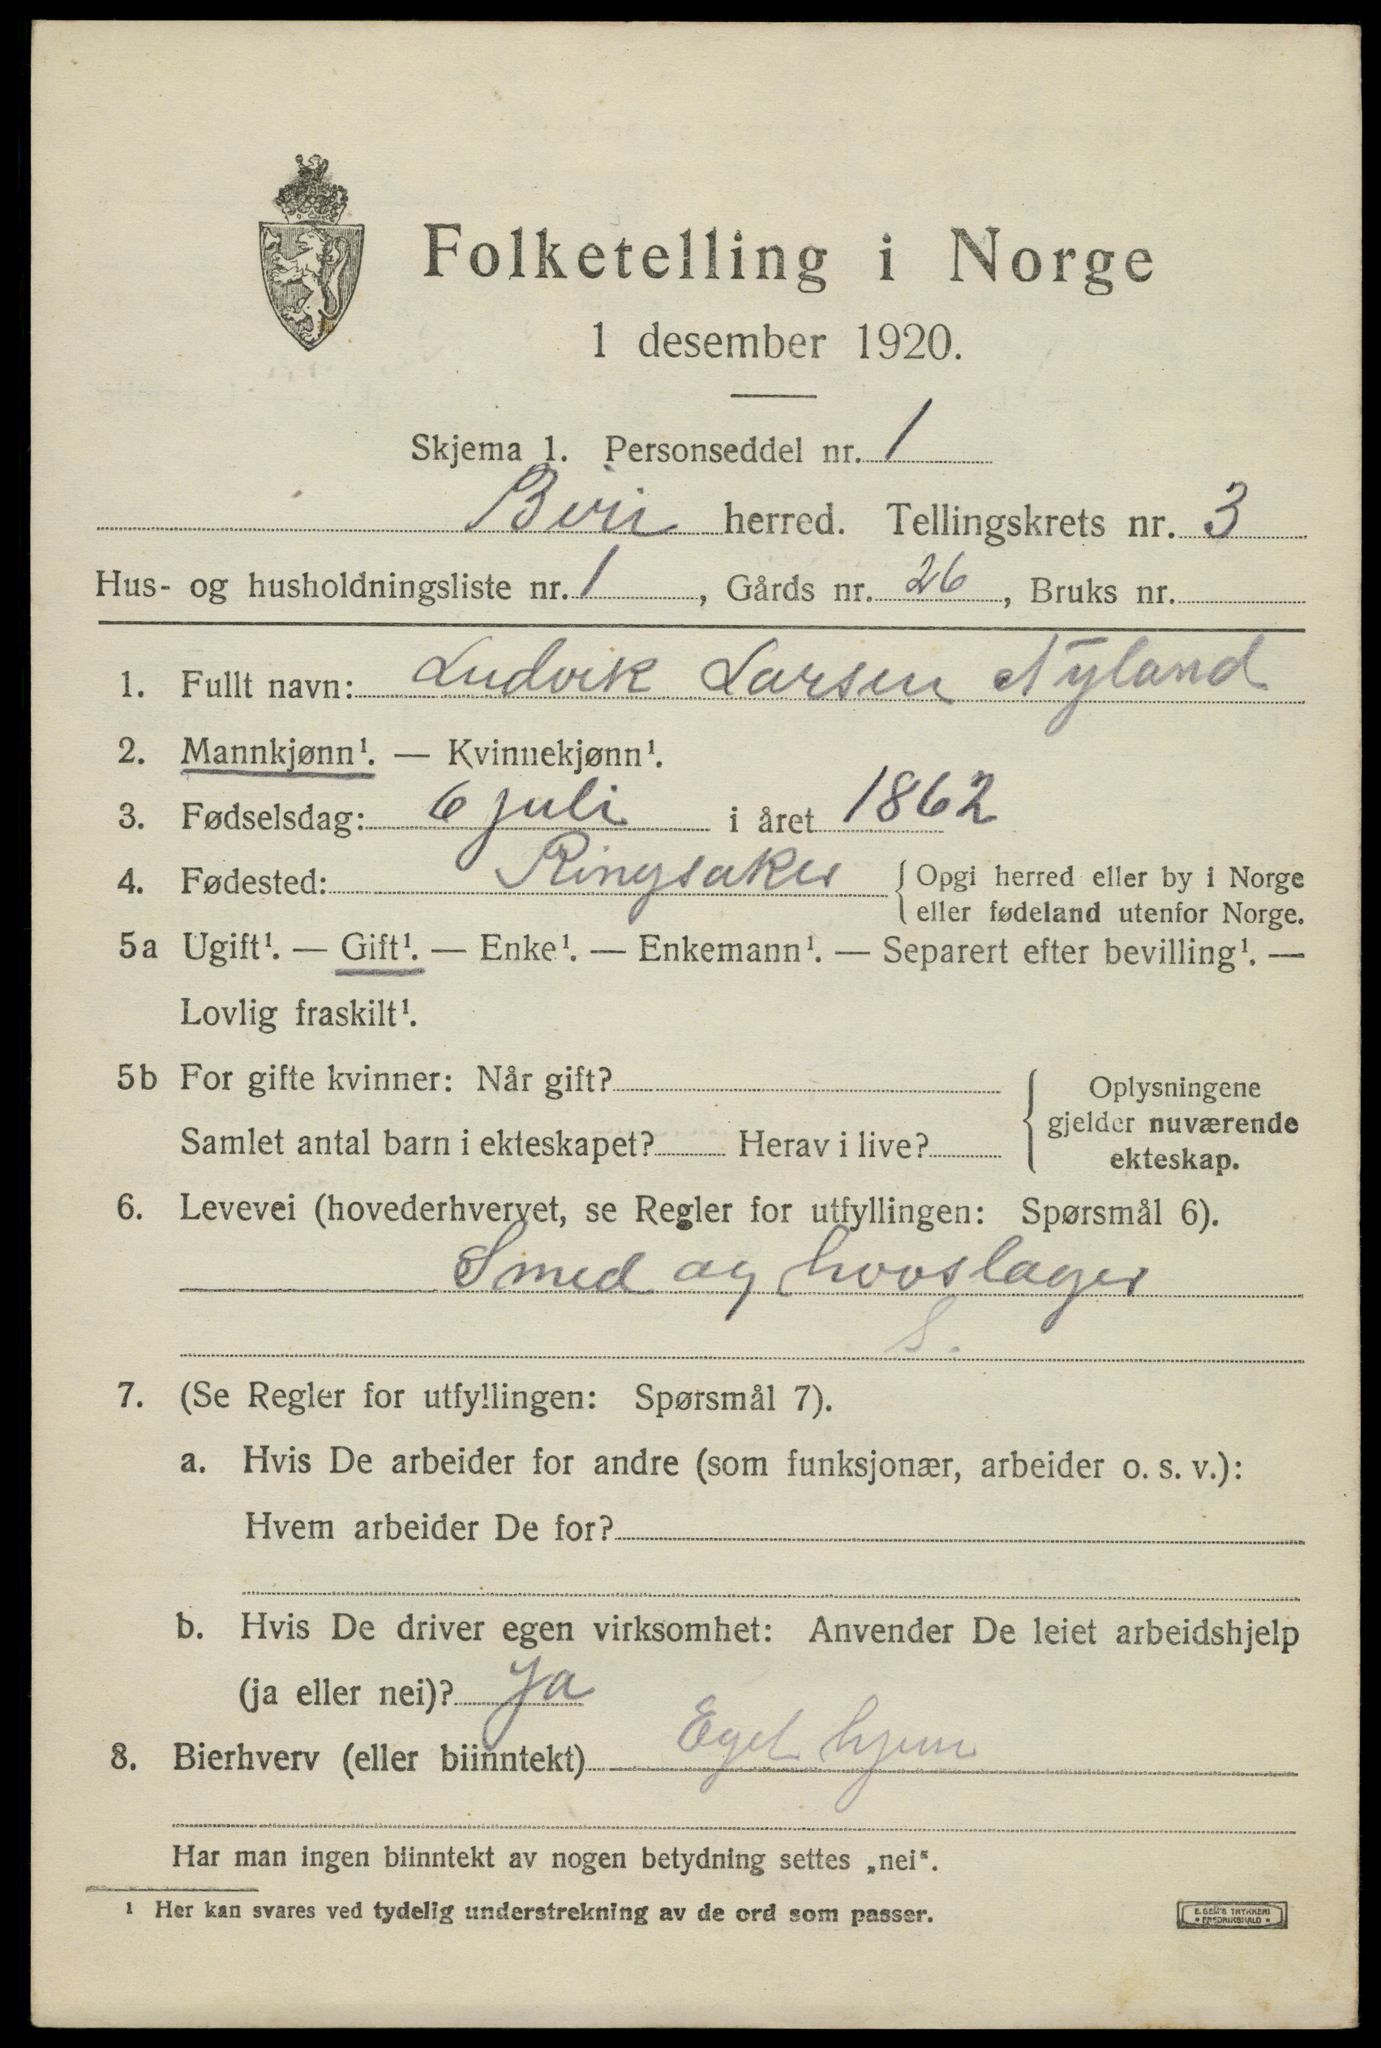 Folketelling i Norge
1 desember 1920.
Skjema 1. Personseddel nr. 1
Biri herred. Tellingskrets nr. 3
Hus- og husholdningsliste nr. 1, Gårds nr. 26, Bruks nr.
1. Fullt navn: Ludvik Larsen Nyland
2. Mannkjønn¹. — Kvinnekjønn¹.
3. Fødselsdag: 6 juli i året 1862
4. Fødested: Ringsaker { Opgi herred eller by i Norge
eller fødeland utenfor Norge.
5a Ugift¹. — Gift¹. — Enke¹. — Enkemann¹. — Separert efter bevilling¹. —
Lovlig fraskilt¹.
5b For gifte kvinner: Når gift?
Samlet antal barn i ekteskapet? Herav i live?
{ Oplysningene
gjelder nuværende
ekteskap.
6. Levevei (hovederhvervet, se Regler for utfyllingen: Spørsmål 6).
Smed og hovslager
S.
7. (Se Regler for utfyllingen: Spørsmål 7).
a. Hvis De arbeider for andre (som funksjonær, arbeider o. s. v.):
Hvem arbeider De for?
b. Hvis De driver egen virksomhet: Anvender De leiet arbeidshjelp
(ja eller nei)? Ja
8. Bierhverv (eller biinntekt) Eget hjem
Har man ingen biinntekt av nogen betydning settes „nei“.
¹ Her kan svares ved tydelig understrekning av de ord som passer.
E. SEM'S TRYKKERI
* FREDRIKSHALD *